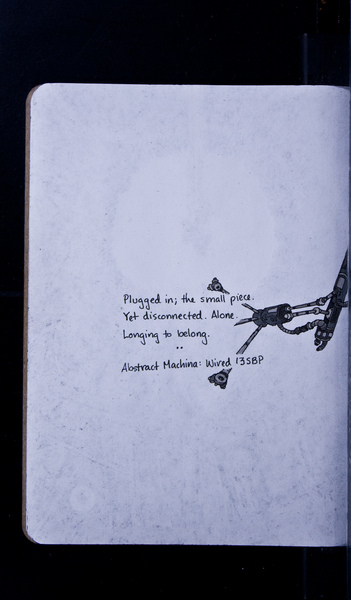 Plugged in; the small piece.
Yet disconnected. Alone.
Longing to belong.
Abstract Machina: Wired 13SBP